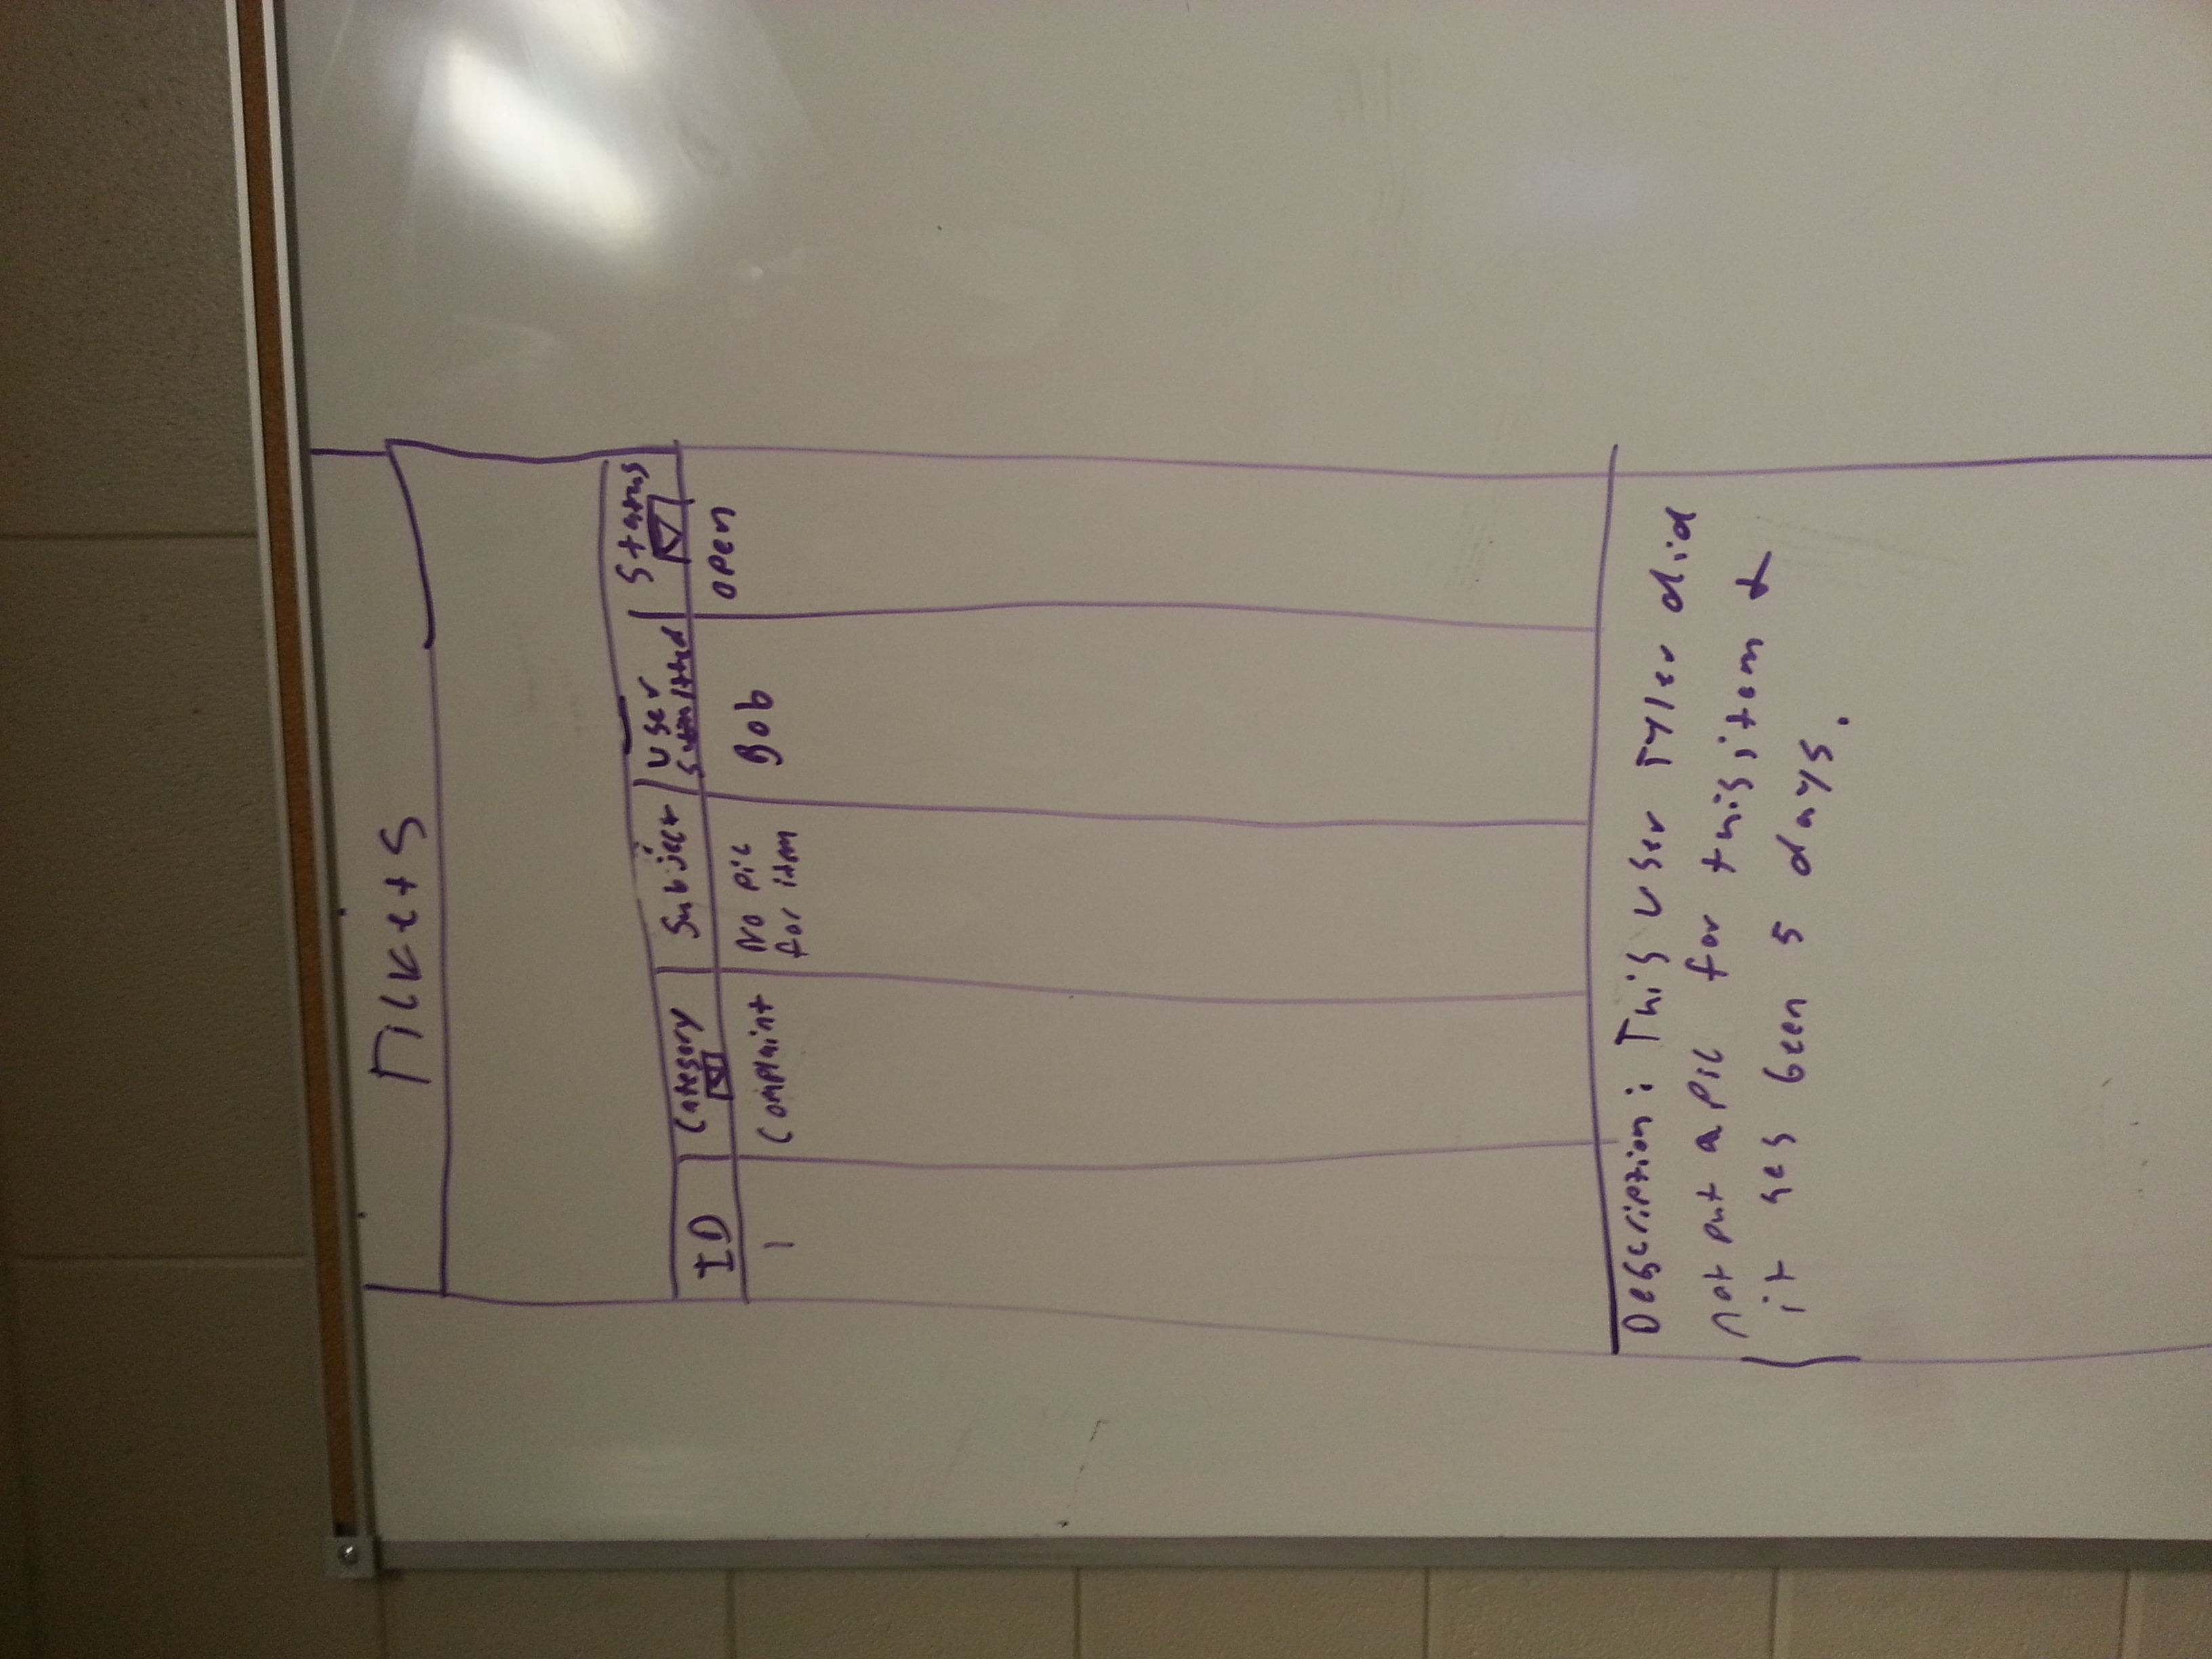 Tickets
ID Category Subject User Status
submitted
1 Complaint No pic Bob open
for item
Description: This user Tyler did
not put a pic for this item &
it has been 5 days.